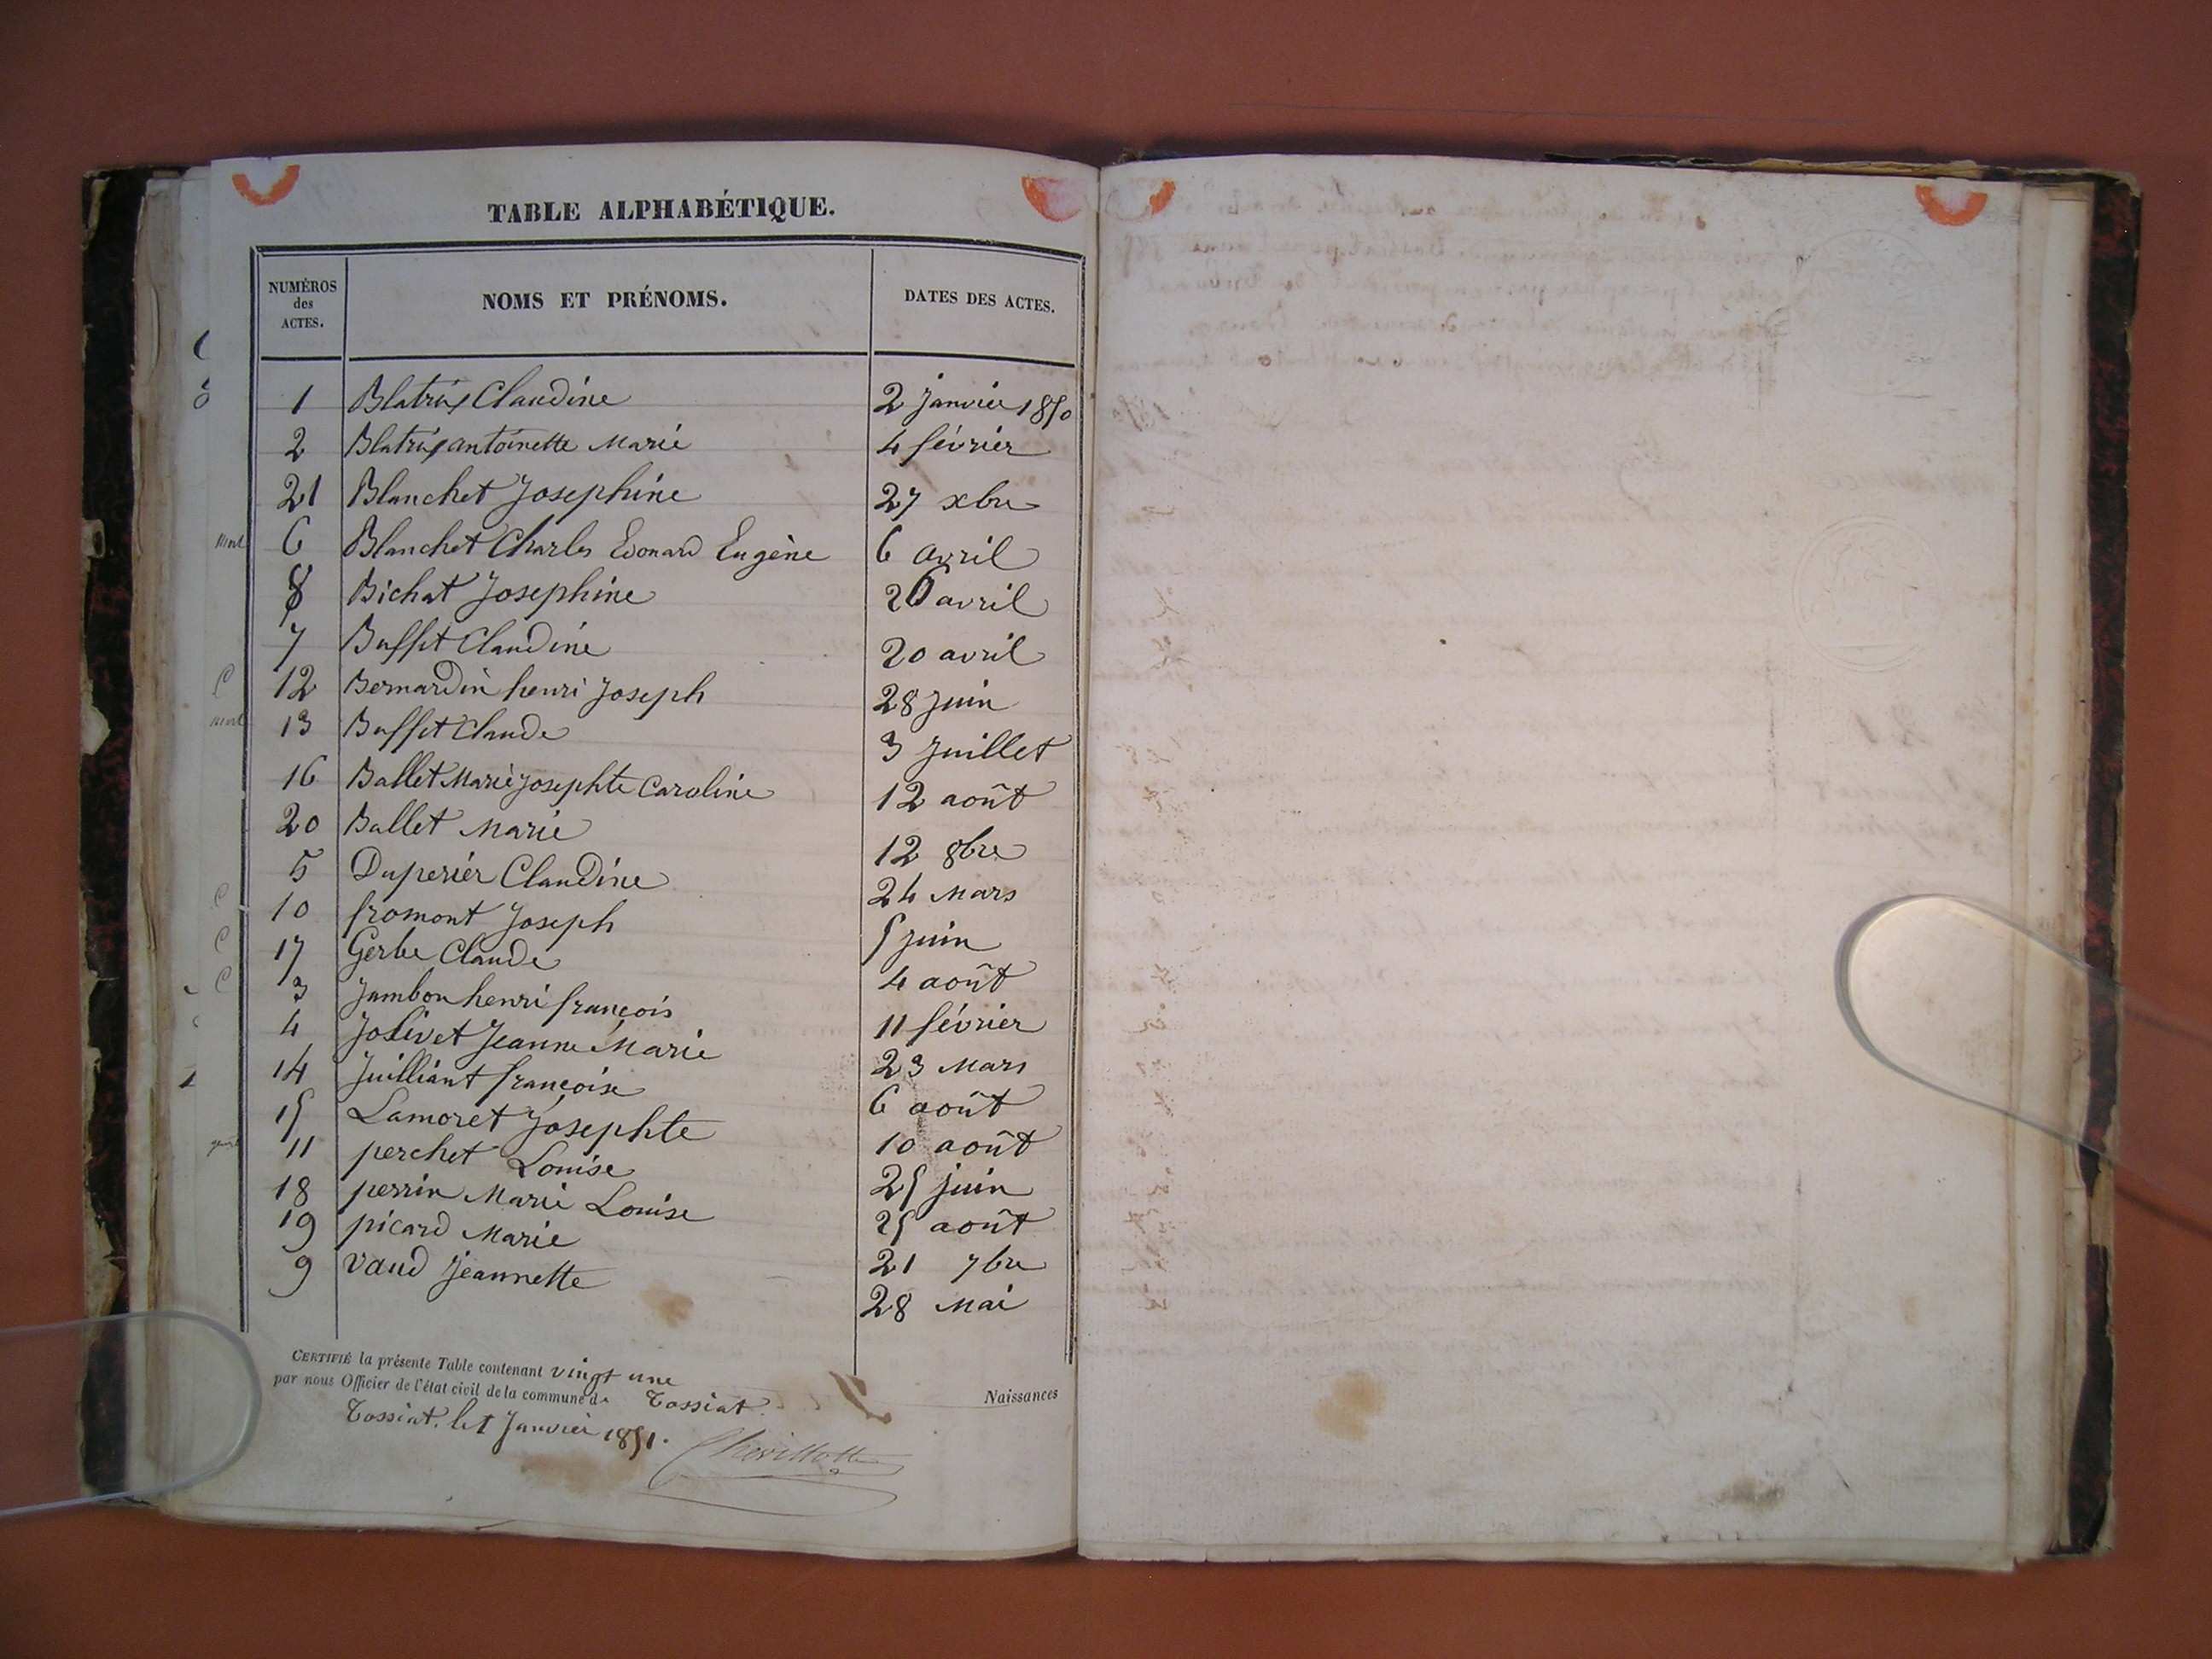 TABLE ALPHABÉTIQUE.
NUMÉROS des ACTES. NOMS ET PRÉNOMS. DATES DES ACTES.
1 Blatrix Claudine 2 janvier 1850
2 Blatrix antoinette Marie 4 février
21 Blanchet Josephine 27 xbre
mort 6 Blanchet Charles Edouard Eugène 6 avril
8 Bichat Josephine 26 avril
7 Buffet Claudine 20 avril
C 12 Bernardin henri Joseph 28 juin
mort 13 Buffet Claude 3 Juillet
16 Ballet Marie josephte Caroline 12 août
20 Ballet Marie 12 8bre
5 Duperier Claudine 24 Mars
C 10 fromont Joseph 5 juin
C 17 Gerbe Claude 4 août
C 3 Jambon henri françois 11 février
4 Jolivet Jeanne Marie 23 Mars
14 Juilliant françoise 6 août
15 Lamoret Josephte 10 août
11 perchet Louise 25 juin
18 perrin Marie Louise 25 août
19 picard Marie 21 7bre
9 Vaud Jeannette 28 Mai
CERTIFIÉ la présente Table contenant vingt une Naissances
par nous Officier de l'état civil de la commune de Tossiat.
Tossiat. le 1 Janvier 1851.
Chevillotte